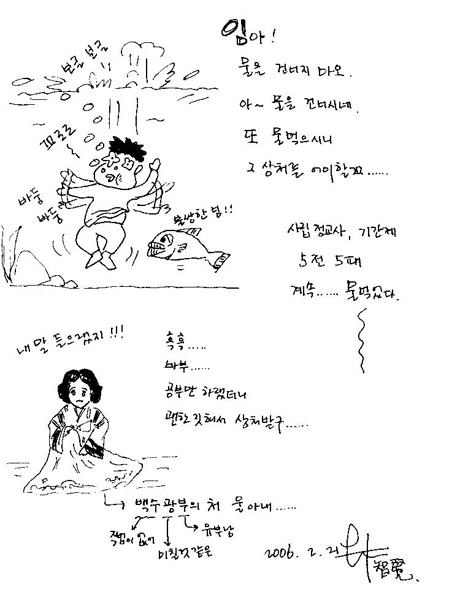 임아!
물을 건너지 마오.
아~ 물을 건너시네.
또 물먹으시니
그 상처를 어이할꼬......
보글 보글
꼬로로
바둥
바둥
불쌍한 넘!!
사립 정교사, 기간제
5전 5패
계속...... 물먹었다.
내 말 들으랬지!!!
흑흑.....
바부.....
공부만 하랬더니
괜한 짓해서 상처받구.....
백수 광부의 처 울아내......
직업이 없어
미친것 같은
유부남
2006. 2. 21
智冕.